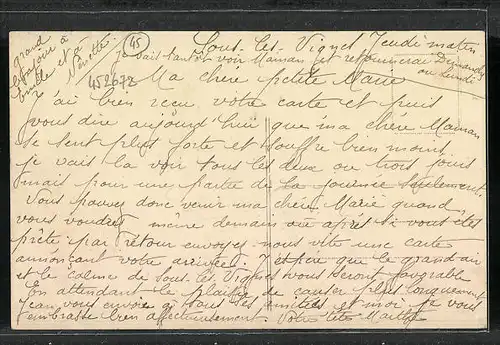 grand
bonjour à
Emile et à
Nénette.
45
452672
Sous-les-Vignes Jeudi matin
Je vais tantôt voir Maman et retournerai Dimanche
ou Lundi
Ma chère petite Marie
J'ai bien reçu votre carte et puis
vous dire aujourd'hui que ma chère Maman
se sent plus forte et souffre bien moins,
je vais la voir tous les deux ou trois jours
mais pour une partie de la journée seulement.
Vous pouvez donc venir ma chère Marie quand
vous voudrez même demain ou après si vous êtes
prête: par retour envoyez-nous vite une carte
annonçant votre arrivée. J'espère que le grand air
et le calme de Sous-les-Vignes vous seront favorable
En attendant le plaisir de causer plus longuement
Jean vous envoie à tous ses amitiés et moi je vous
embrasse bien affectueusement. Votre Marthe